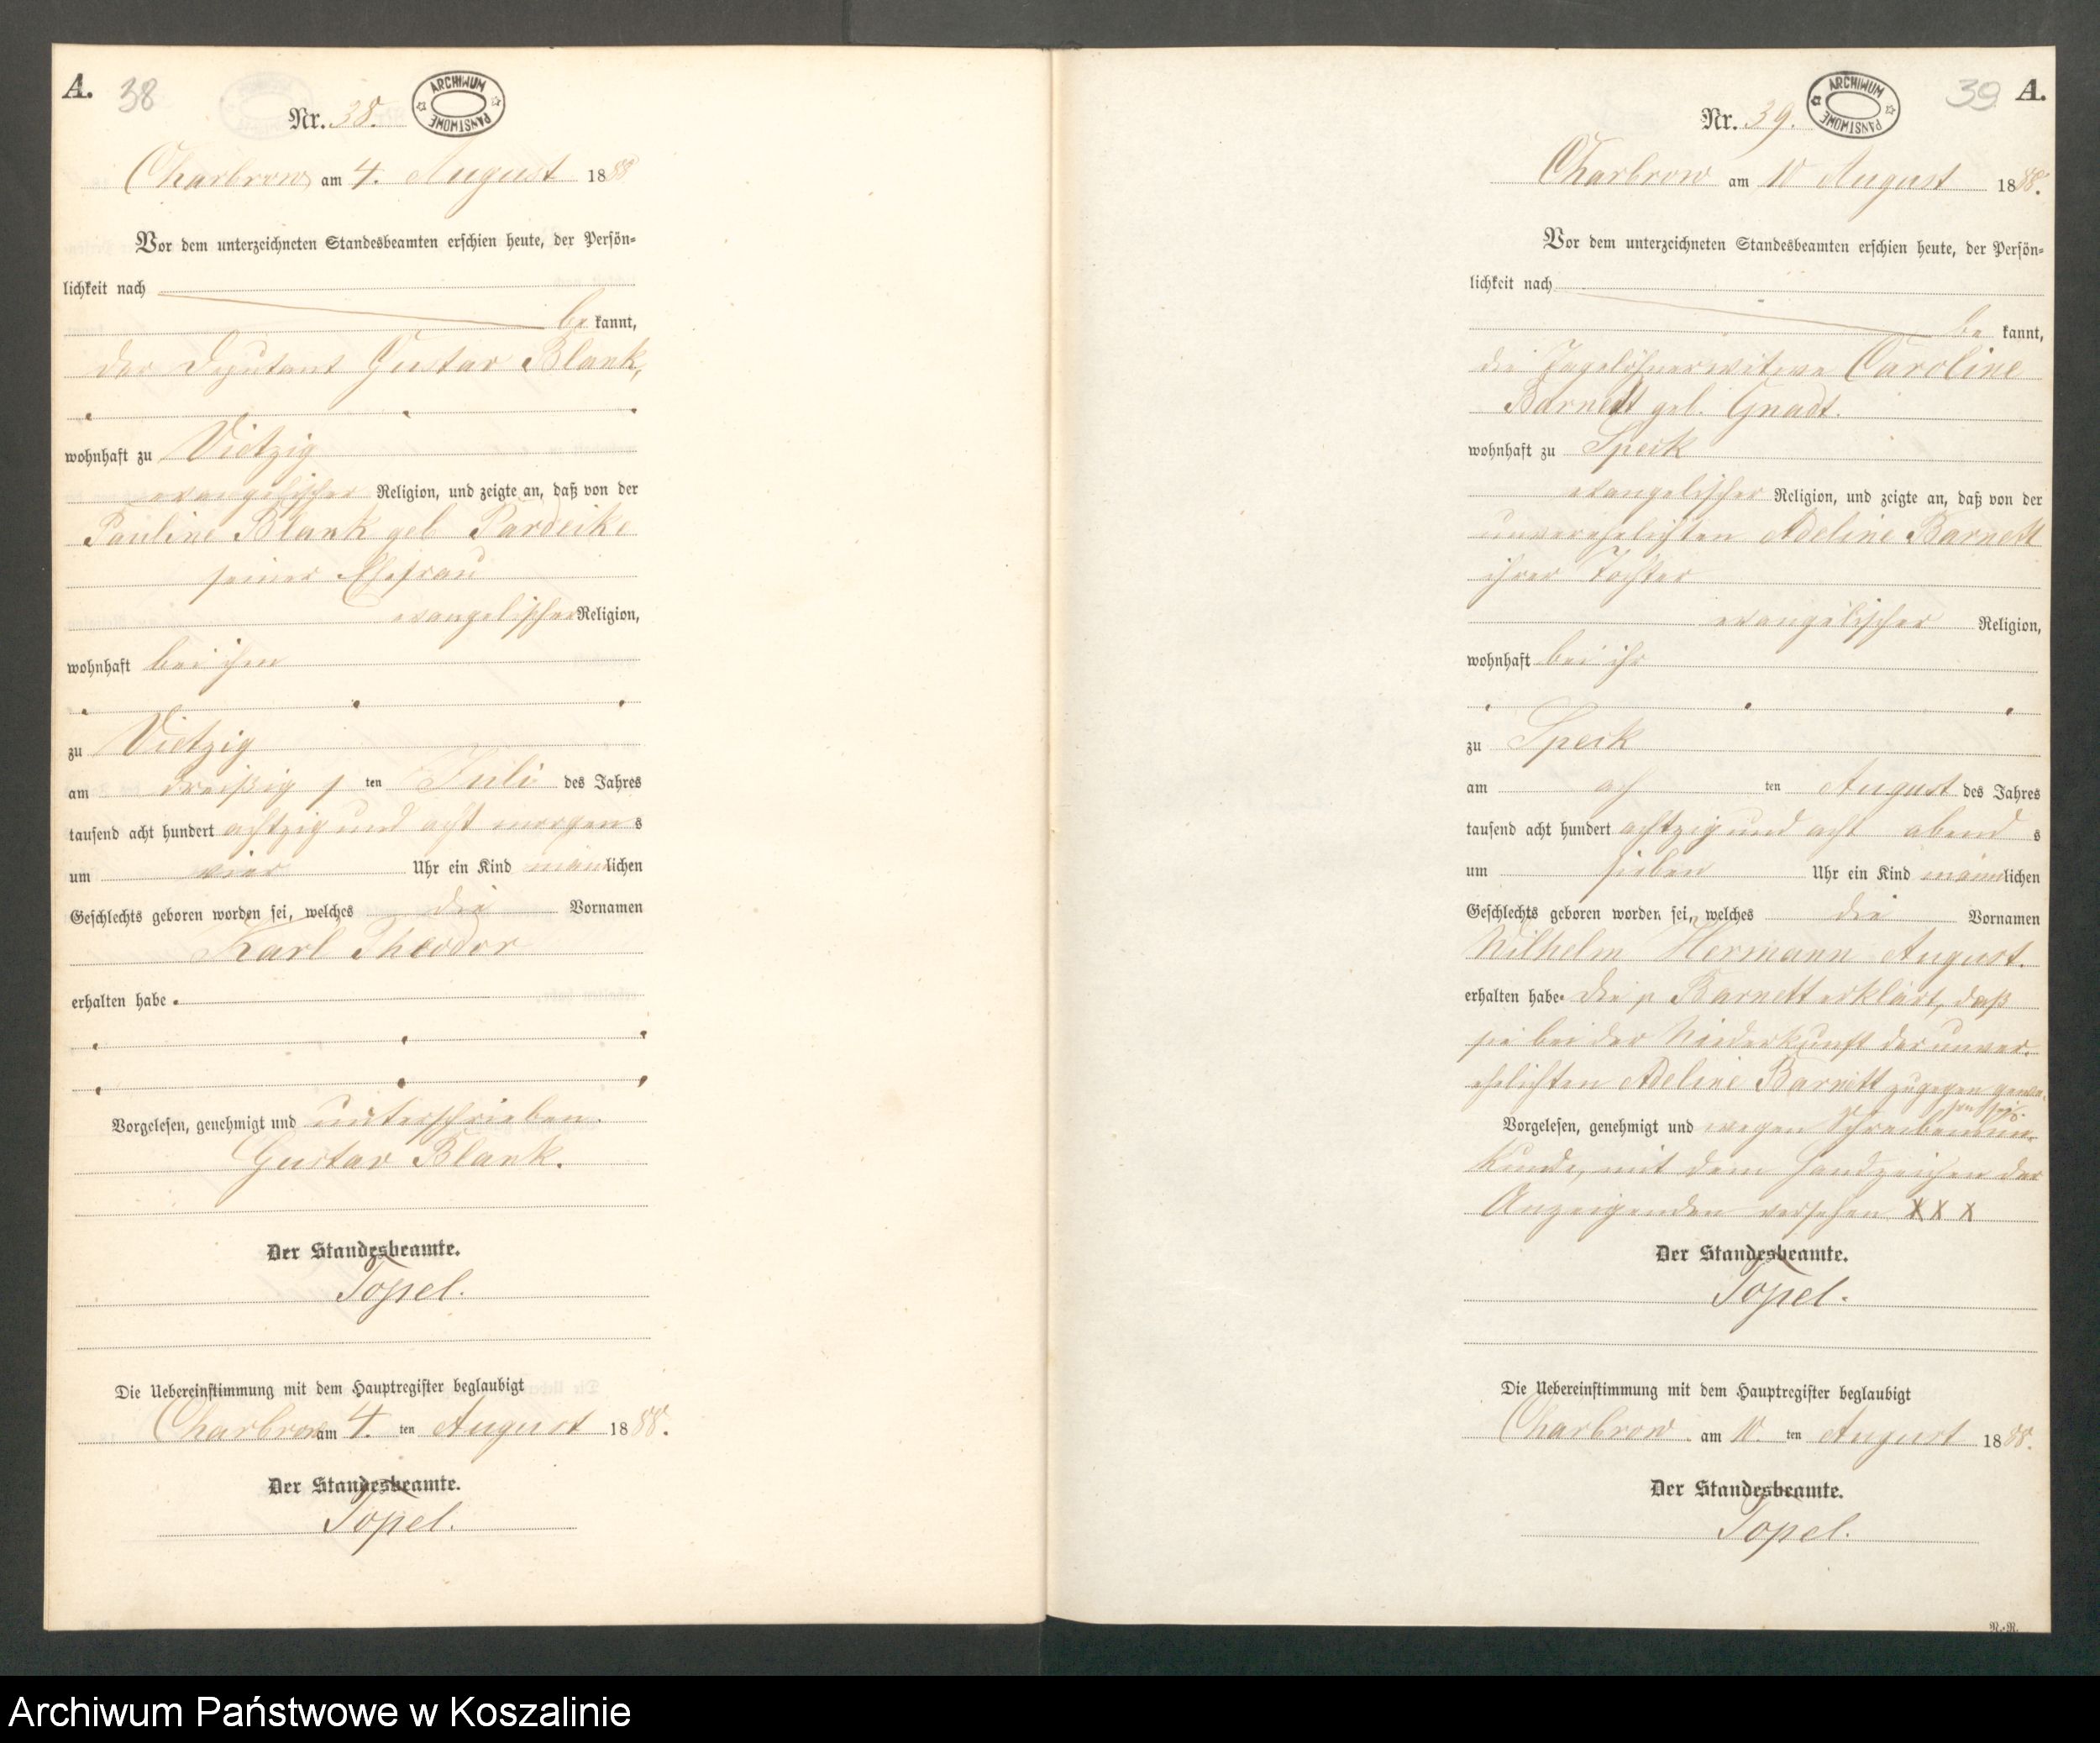 A. 38
Nr. 38.
ARCHIWUM PAŃSTWOWE
Charbrow am 4. August 1888
Vor dem unterzeichneten Standesbeamten erschien heute, der Persön-
lichkeit nach
be kannt,
der Deputant Gustav Blank,
wohnhaft zu Vietzig
evangelischer Religion, und zeigte an, daß von der
Pauline Blank geb. Pardeike
seiner Ehefrau
evangelischer Religion,
wohnhaft bei ihm
zu Vietzig
am dreißig s ten Juli des Jahres
tausend acht hundert achtzig und acht morgen s
um vier Uhr ein Kind männlichen
Geschlechts geboren worden sei, welches die Vornamen
Karl Theodor
erhalten habe.
Vorgelesen, genehmigt und unterschrieben.
Gustav Blank.
Der Standesbeamte.
Topel.
Die Uebereinstimmung mit dem Hauptregister beglaubigt
Charbrow am 4. ten August 1888.
Der Standesbeamte.
Topel.
39 A.
Nr. 39.
ARCHIWUM PAŃSTWOWE
Charbrow am 10 August 1888.
Vor dem unterzeichneten Standesbeamten erschien heute, der Persön-
lichkeit nach
be kannt,
die Tagelöhnerwitwe Caroline
Barnett geb. Gnadt.
wohnhaft zu Speck
evangelischer Religion, und zeigte an, daß von der
unverehelichten Adeline Barnett
ihrer Tochter
evangelischer Religion,
wohnhaft bei ihr
zu Speck
am ach ten August des Jahres
tausend acht hundert achtzig und acht abend s
um sieben Uhr ein Kind männlichen
Geschlechts geboren worden sei, welches die Vornamen
Wilhelm Hermann August.
erhalten habe. Die p. Barnett erklärt, daß
sie bei der Niederkunft der unver-
ehelichten Adeline Barnett zugegen gewe-
sen sei.
Vorgelesen, genehmigt und wegen Schreibensun-
kunde, mit dem Handzeichen der
Anzeigenden versehen X X X
Der Standesbeamte.
Topel.
Die Uebereinstimmung mit dem Hauptregister beglaubigt
Charbrow. am 10. ten August 1888.
Der Standesbeamte.
Topel.
Archiwum Państwowe w Koszalinie